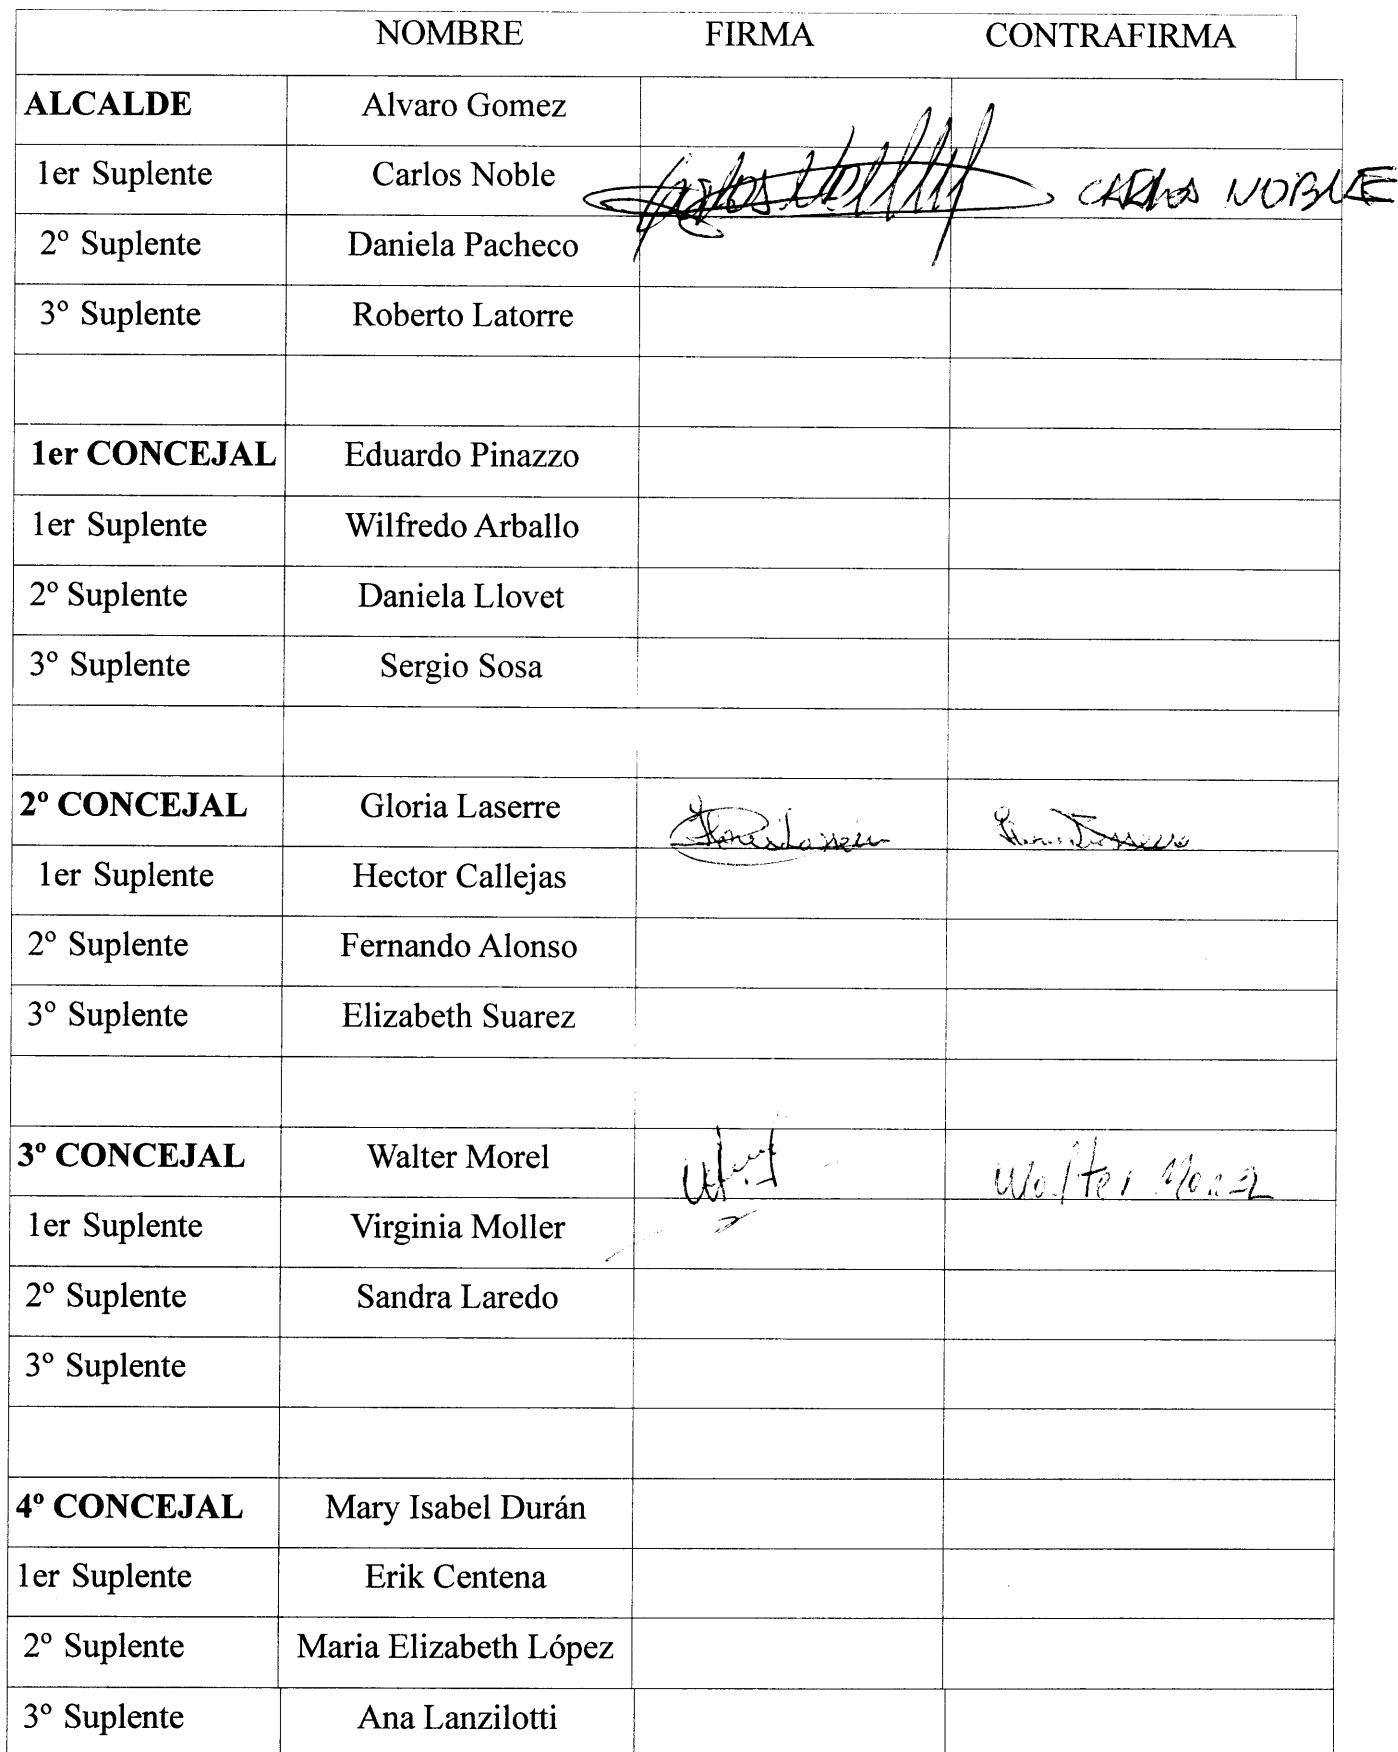 NOMBRE FIRMA CONTRAFIRMA
ALCALDE Alvaro Gomez
1er Suplente Carlos Noble Carlos CARLOS NOBLE
2º Suplente Daniela Pacheco
3º Suplente Roberto Latorre
1er CONCEJAL Eduardo Pinazzo
1er Suplente Wilfredo Arballo
2º Suplente Daniela Llovet
3º Suplente Sergio Sosa
2º CONCEJAL Gloria Laserre
1er Suplente Hector Callejas
2º Suplente Fernando Alonso
3º Suplente Elizabeth Suarez
3º CONCEJAL Walter Morel Walter Morel
1er Suplente Virginia Moller
2º Suplente Sandra Laredo
3º Suplente
4º CONCEJAL Mary Isabel Durán
1er Suplente Erik Centena
2º Suplente Maria Elizabeth López
3º Suplente Ana Lanzilotti